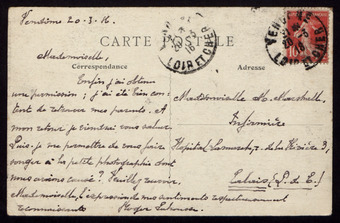 Vendôme 20-3-16.
CARTE
Mademoiselle,
Correspondance
Adresse
LOIR ET CHER
VENDOME
Enfin j'ai obtenu
une permission; j'ai été bien con-
tent de retrouver mes parents. A
mon retour je viendrai vous saluer.
Puis-je me permettre de vous faire
songer à la petite photographie dont
nous avions causé? Veuillez recevoir,
Mademoiselle, l'expression de mes sentiments respectueusement
reconnaissants
Roger
Mademoiselle M. Marshall
Infirmière
Hôpital rue de la Rivière 3,
Calais (P. de C.)